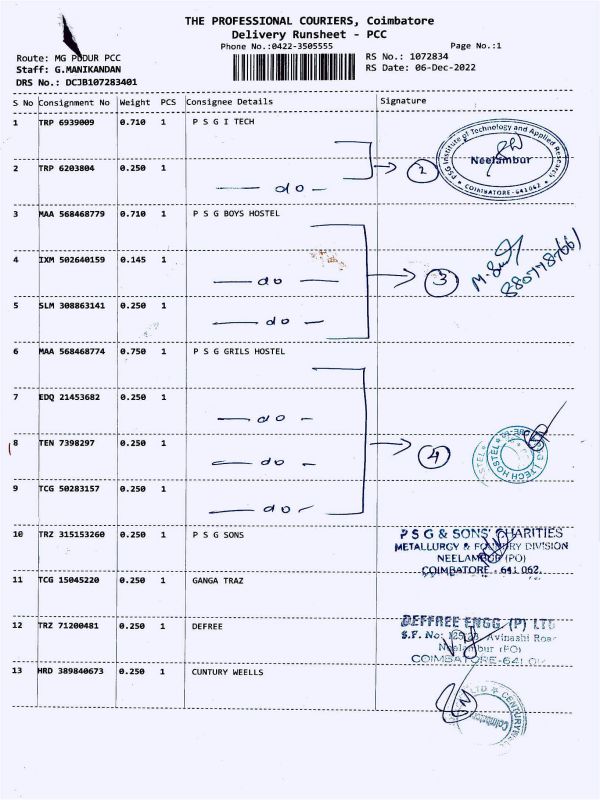 THE PROFESSIONAL COURIERS, Coimbatore
Delivery Runsheet - PCC
Phone No.:0422-3505555
Page No.:1
Route: MG PUDUR PCC
RS No.: 1072834
Staff: G.MANIKANDAN
RS Date: 06-Dec-2022
DRS No.: DCJB107283401
S No Consignment No Weight PCS Consignee Details Signature
1 TRP 6939009 0.710 1 P S G I TECH
PSG Institute of Technology and Applied Research
Neelambur
COIMBATORE - 641 062
2 TRP 6203804 0.250 1
2
do
3 MAA 568468779 0.710 1 P S G BOYS HOSTEL
4 IXM 502640159 0.145 1
do
3
5 SLM 308863141 0.250 1
do
6 MAA 568468774 0.750 1 P S G GRILS HOSTEL
7 EDQ 21453682 0.250 1
do
8 TEN 7398297 0.250 1
do
4
9 TCG 50283157 0.250 1
do
10 TRZ 315153260 0.250 1 P S G SONS
P S G & SONS' CHARITIES
METALLURGY & FOUNDRY DIVISION
NEELAMBUR (PO)
COIMBATORE - 641 062.
11 TCG 15045220 0.250 1 GANGA TRAZ
12 TRZ 71200481 0.250 1 DEFREE
DEFFREE ENGG (P) LTD
S.F. No: Avinashi Road
Neelambur (PO)
COIMBATORE-641 0
13 HRD 389840673 0.250 1 CUNTURY WEELLS